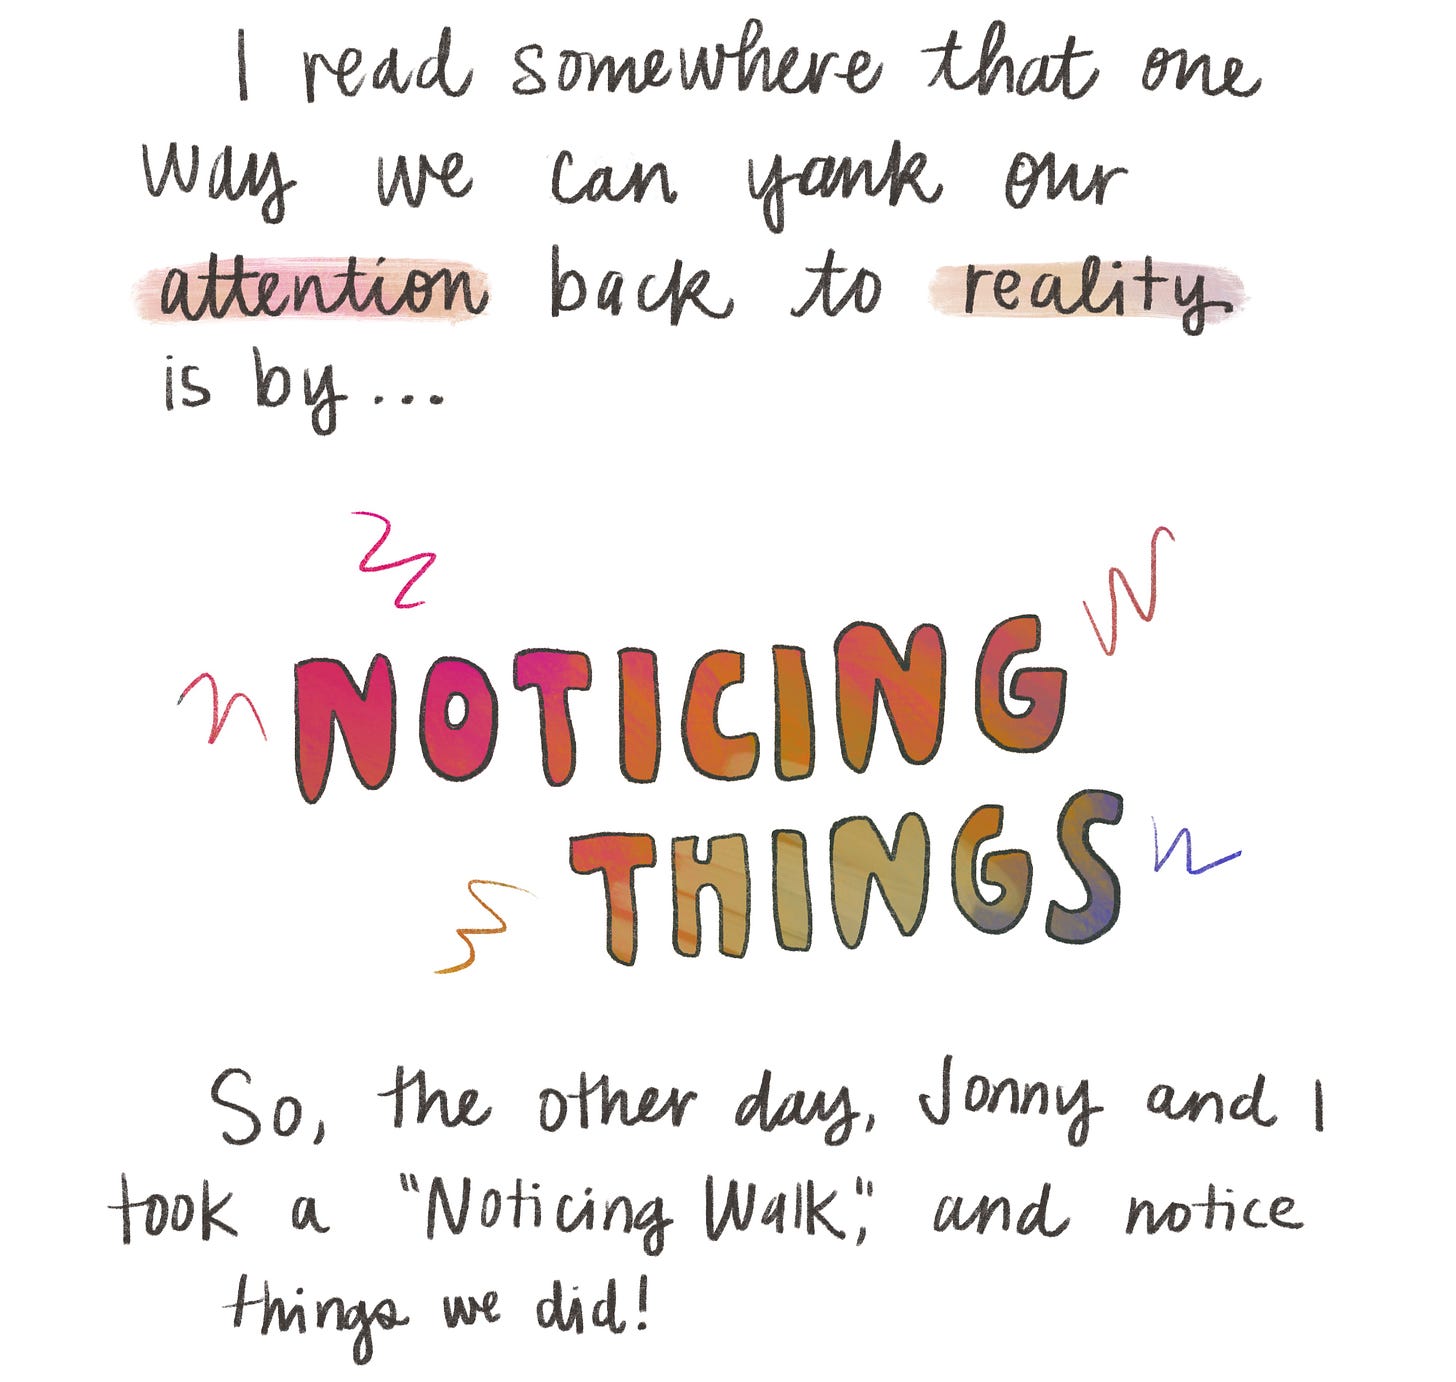 I read somewhere that one
way we can yank our
attention back to reality
is by...
NOTICING
THINGS
So, the other day, Jonny and I
took a "Noticing Walk," and notice
things we did!